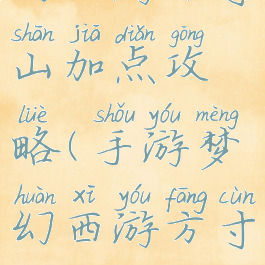 shān jiā diǎn gōng
山加点攻
lüè shǒu yóu mèng
略(手游梦
huàn xī yóu fāng cùn
幻西游方寸